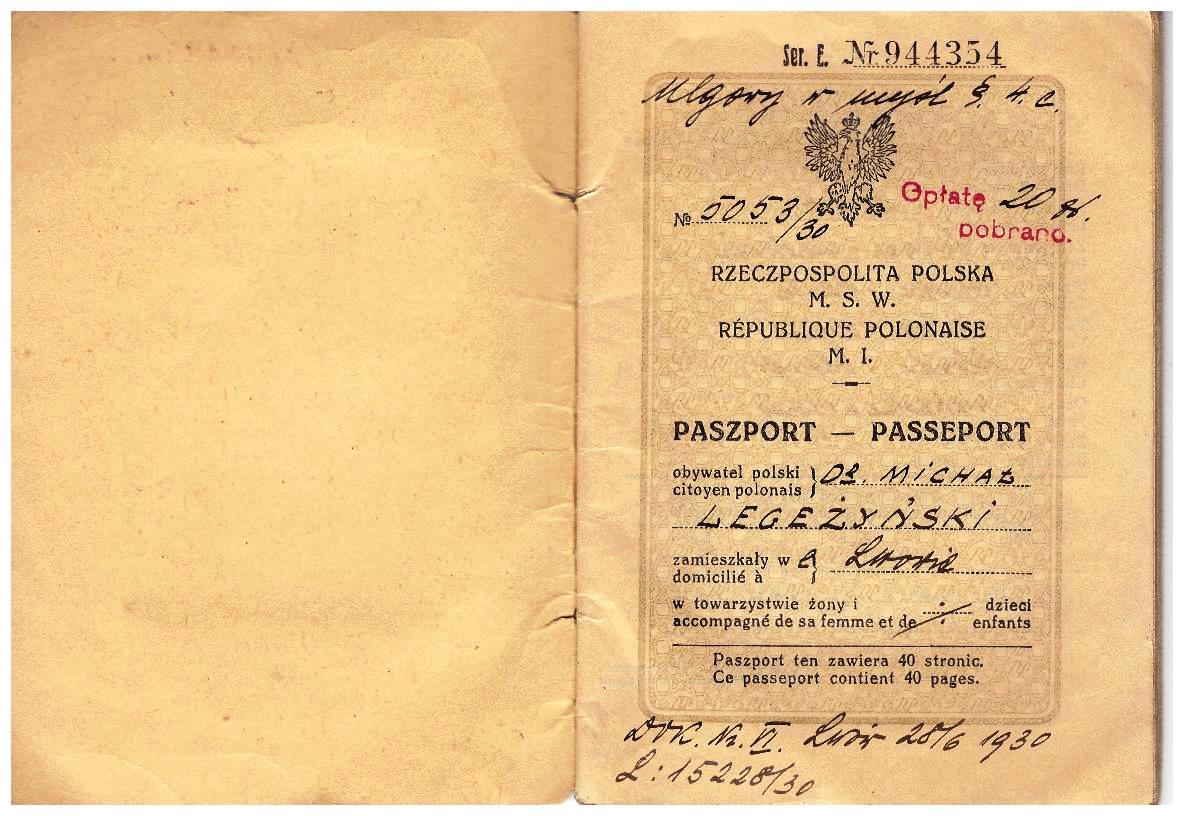 Ser. E. Nr 944354
Ulgowy w myśl §. 4. c.
№ 5053/30
Opłatę 20 zł.
pobrano.
RZECZPOSPOLITA POLSKA
M. S. W.
RÉPUBLIQUE POLONAISE
M. I.
PASZPORT — PASSEPORT
obywatel polski } Dr. MICHAŁ
citoyen polonais
LEGEŻYŃSKI
zamieszkały we } Lwowie
domicilié à
w towarzystwie żony i dzieci
accompagné de sa femme et de enfants
Paszport ten zawiera 40 stronic.
Ce passeport contient 40 pages.
DOK. Nr. VI. Lwów 28/6 1930
L: 15228/30